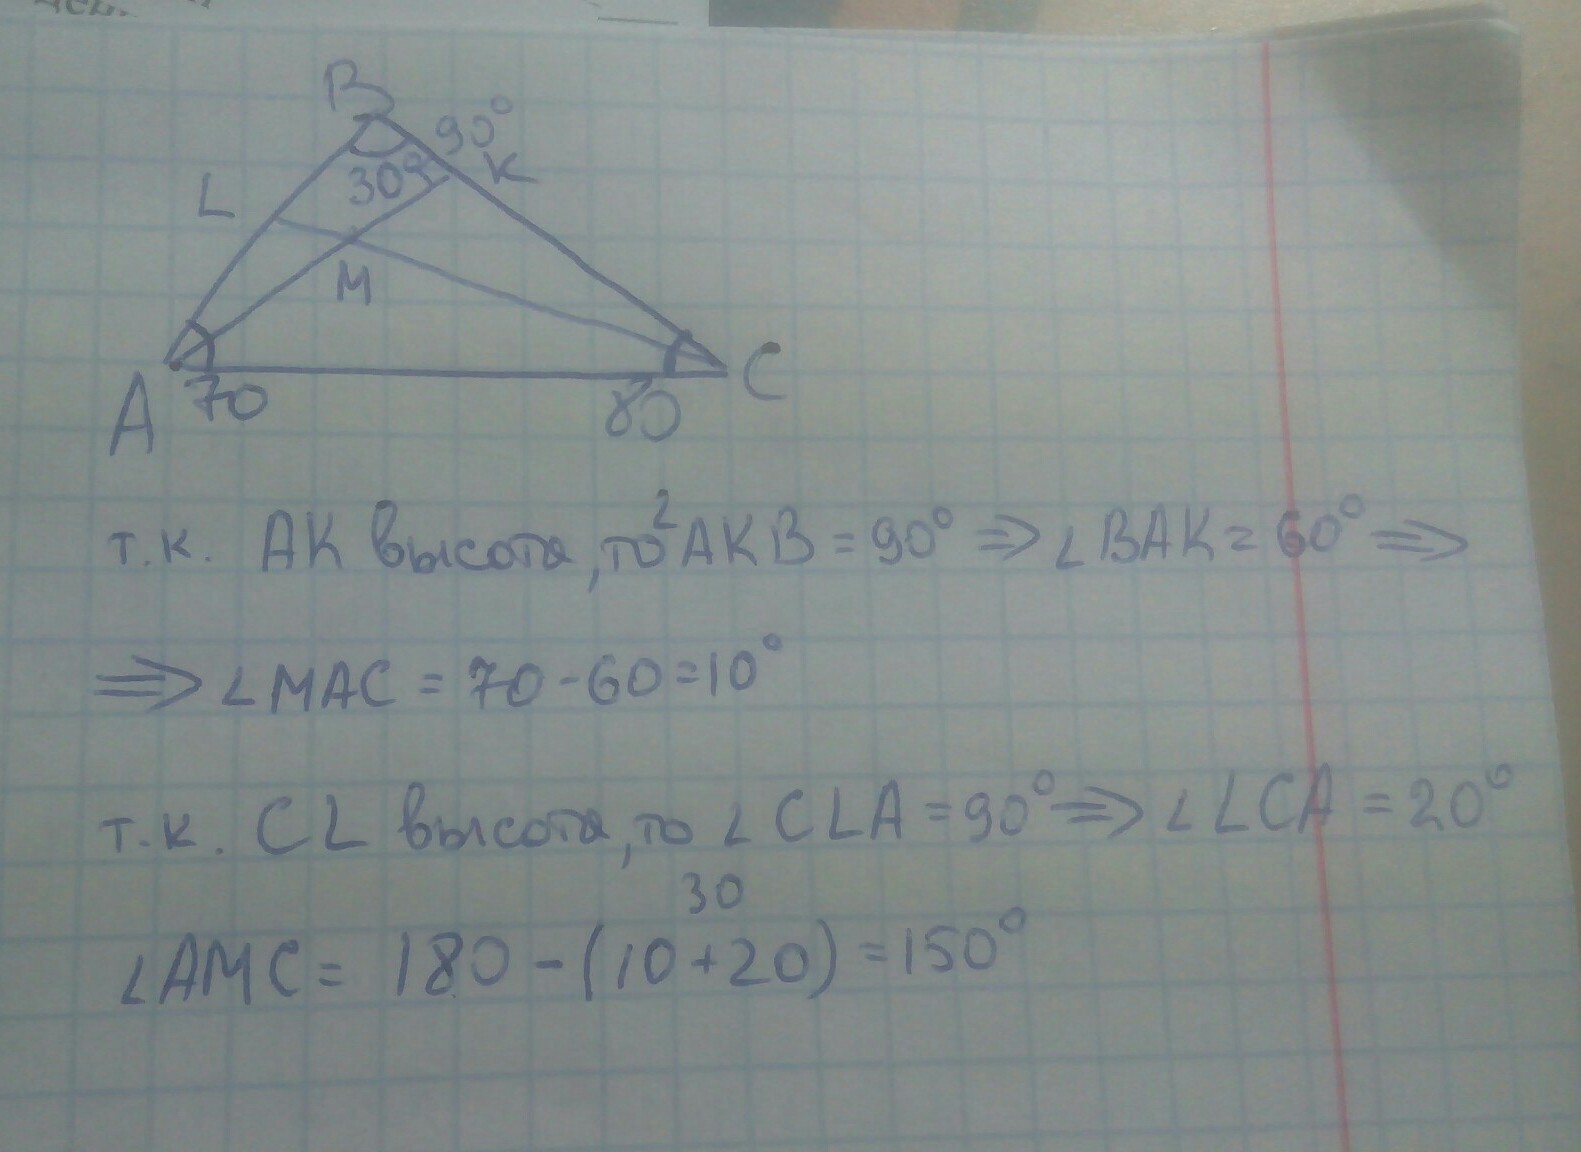 B
90°
30°
K
L
M
A
70
80
C
т.к. AK высота, то ∠AKB = 90° => ∠BAK = 60° =>
=> ∠MAC = 70-60=10°
т.к. CL высота, то ∠CLA = 90° => ∠LCA = 20°
30
∠AMC = 180 - (10+20) = 150°